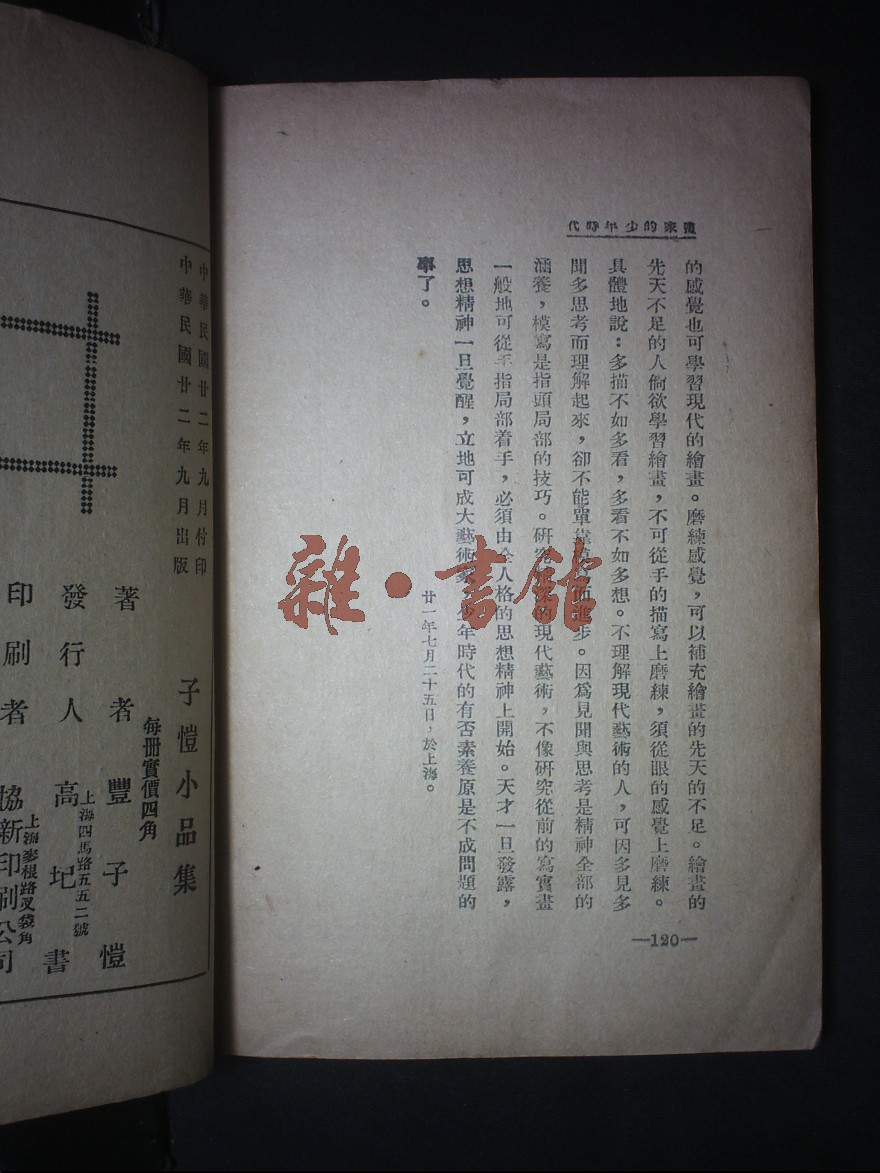 畫家的少年時代
的感覺也可學習現代的繪畫。磨練感覺，可以補充繪畫的先天的不足。繪畫的
先天不足的人倘欲學習繪畫，不可從手的描寫上磨練，須從眼的感覺上磨練。
具體地說：多描不如多看，多看不如多想。不理解現代藝術的人，可因多見多
聞多思考而理解起來，卻不能單靠而進步。因爲見聞與思考是精神全部的
涵養，模寫是指頭局部的技巧。研究的現代藝術，不像研究從前的寫實畫
一般地可從手指局部着手，必須由全人格的思想精神上開始。天才一旦發露，
思想精神一旦覺醒，立地可成大藝術家，少年時代的有否素養原是不成問題的
事了。
廿一年七月二十五日，於上海。
—120—
雜·書館
中華民國廿二年九月付印
中華民國廿二年九月出版
子愷小品集
每冊實價四角
著者豐子愷
發行人高圮
上海四馬路五五二號
書
印刷者協新印刷公司
上海麥根路叉袋角